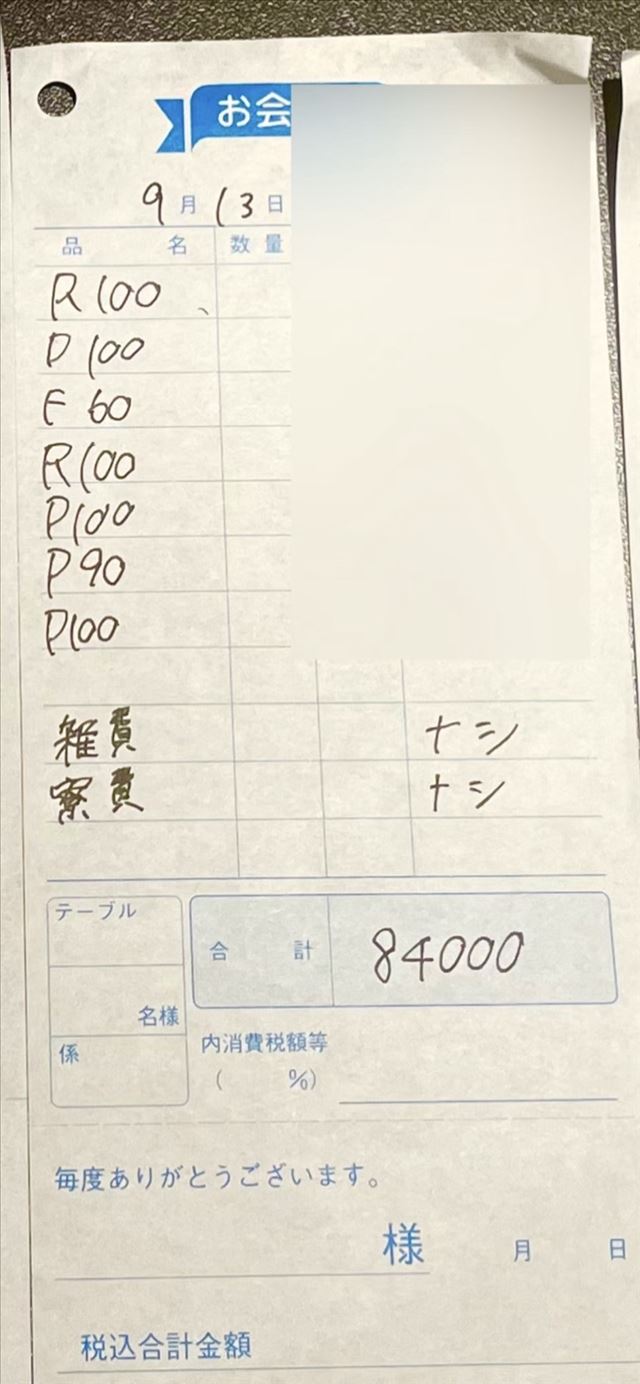 お会
9月13日
品名 数量
R100
P100
F60
R100
P100
P90
P100
雑費 ナシ
寮費 ナシ
テーブル
名様
係
合計 84000
内消費税額等
( %)
毎度ありがとうございます。
様 月 日
税込合計金額